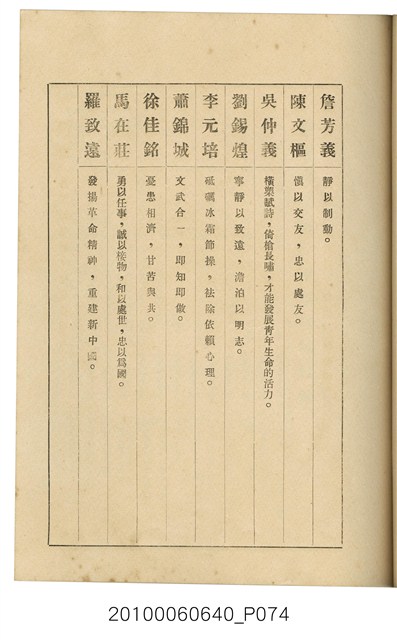 詹芳義　靜以制動。
陳文樞　慎以交友，忠以處友。
吳仲義　橫槊賦詩，倚槍長嘯，才能發展靑年生命的活力。
劉錫煌　寧靜以致遠，澹泊以明志。
李元培　砥礪冰霜節操，祛除依賴心理。
蕭錦城　文武合一，即知即做。
徐佳銘　憂患相濟，甘苦與共。
馬在莊　勇以任事，誠以接物，和以處世，忠以爲國。
羅致遠　發揚革命精神，重建新中國。
20100060640_P074